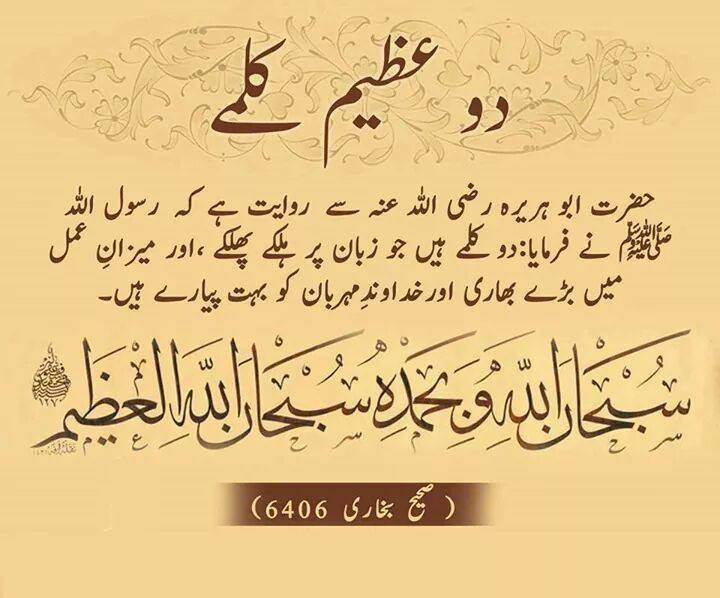 دو عظیم کلمے
حضرت ابو ہریرہ رضی اللہ عنہ سے روایت ہے کہ رسول اللہ
ﷺ نے فرمایا:دو کلمے ہیں جو زبان پر ہلکے پھلکے ،اور میزانِ عمل
میں بڑے بھاری اورخداوندِمہربان کو بہت پیارے ہیں۔
سُبْحَانَ اللهِ وَبِحَمْدِهِ سُبْحَانَ اللهِ الْعَظِيمِ
(صحیح بخاری 6406)